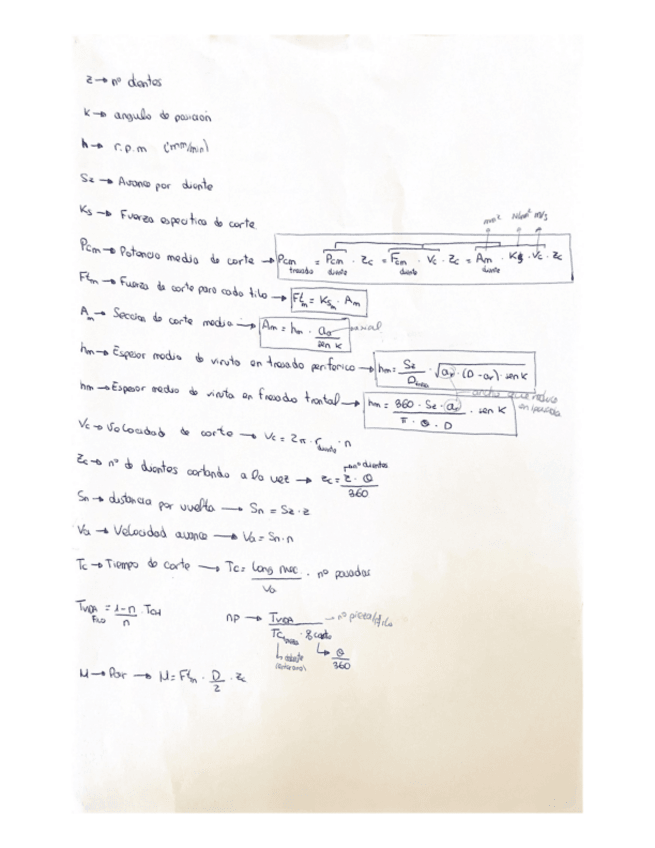 z → nº dientes
K → angulo de posición
n → r.p.m (mm/min)
Sz → Avance por diente
mm² N/mm² m/s
Ks → Fuerza especifica de corte
Pcm → Potencia media de corte → Pcm fresado = Pcm diente · Zc = Fcm diente · Vc · Zc = Am diente · Ks · Vc · Zc
Ftm → Fuerza de corte para cada filo → Ftm = Ksm · Am
Am → Seccion de corte media → Am = hm · aa / sen K axial
hm → Espesor medio de viruta en fresado periferico → hm = Sz / Dfresa · √ar · (D - ar) · sen K
hm → Espesor medio de viruta en fresado frontal → hm = 360 · Sz · ar / π · θ · D · sen K
Vc → Velocidad de corte → Vc = 2π · r · n
Zc → nº de dientes cortando a la vez → Zc = z · θ / 360
Sn → distancia por vuelta → Sn = Sz · z
Va → Velocidad avance → Va = Sn · n
Tc → Tiempo de corte → Tc = Long mec. / Va · nº pasadas
TVIDA FILO = 1-n / n · TCH np → TVIDA / Tc → nº pieza/filo
θ / 360
M → Par → M = Ftm · D / 2 · Zc